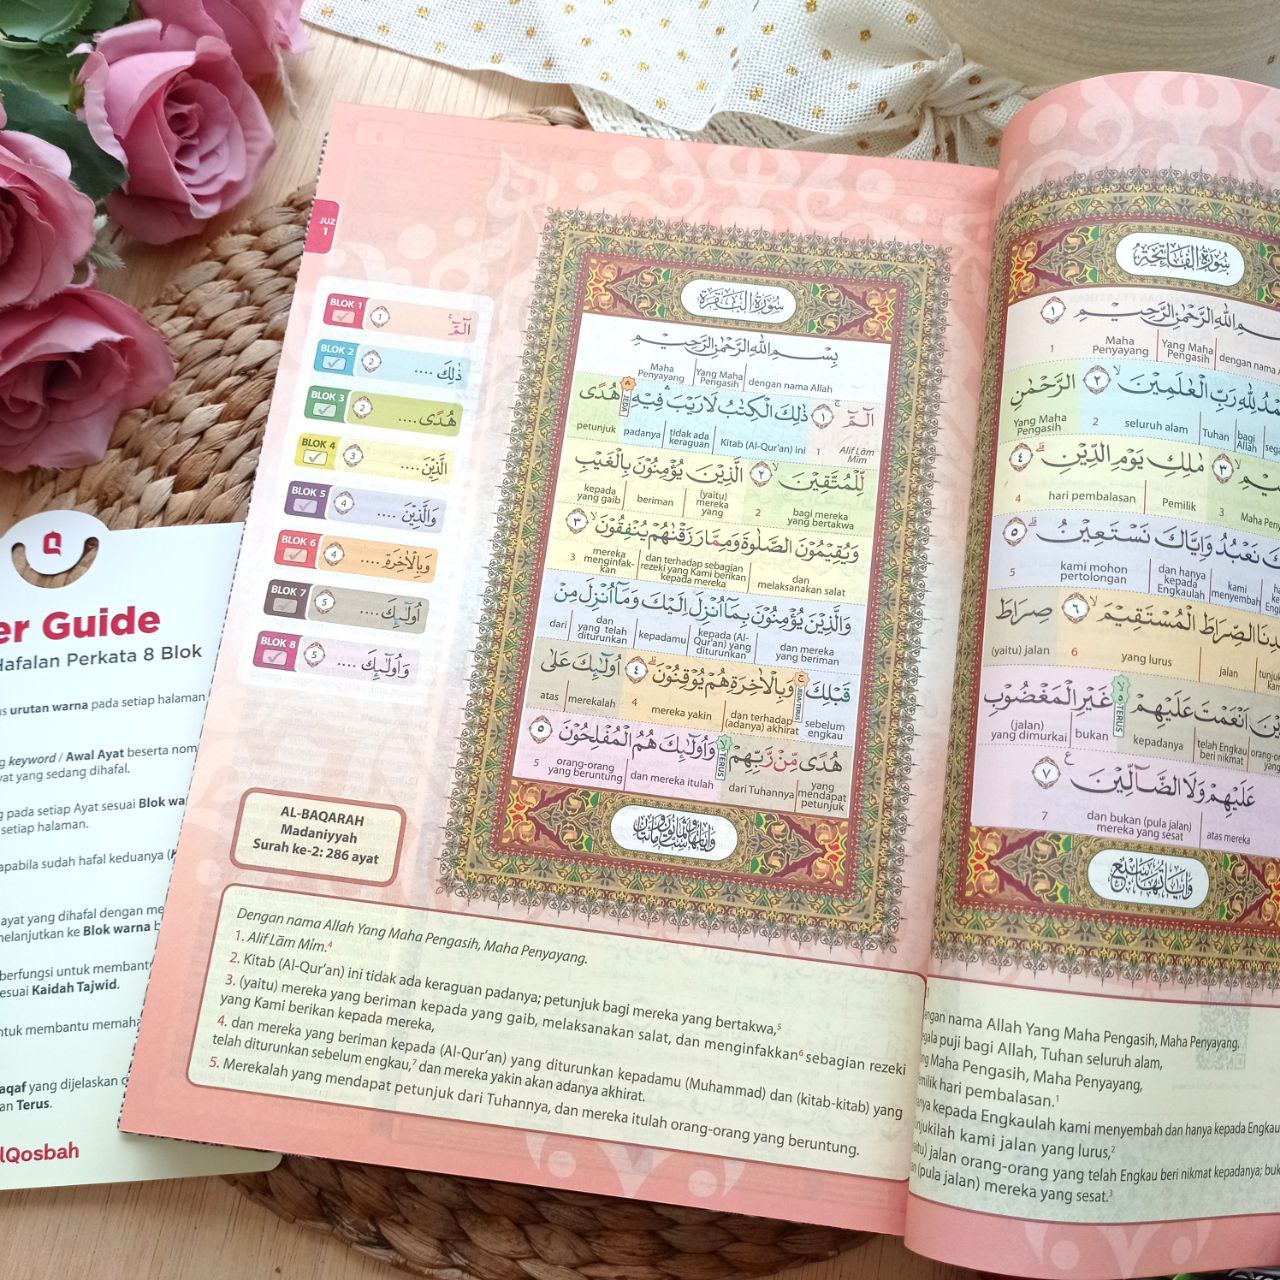 JUZ
1
BLOK 1
١
الٓمّٓ ۚ
BLOK 2
٢
ذٰلِكَ ....
BLOK 3
٢
هُدًى....
BLOK 4
٣
الَّذِيْنَ ....
BLOK 5
٤
وَالَّذِيْنَ ....
BLOK 6
٤
وَبِالْاٰخِرَةِ ....
BLOK 7
٥
اُولٰۤىِٕكَ ....
BLOK 8
٥
وَاُولٰۤىِٕكَ ....
AL-BAQARAH
Madaniyyah
Surah ke-2: 286 ayat
سُوْرَةُ الْبَقَرَةِ
بِسْمِ اللّٰهِ الرَّحْمٰنِ الرَّحِيْمِ
dengan nama Allah | Yang Maha Pengasih | Maha Penyayang
الٓمّٓ ۚ ١ ذٰلِكَ الْكِتٰبُ لَا رَيْبَ ۛ فِيْهِ ۛ هُدًى
Alif Lām Mīm 1 | Kitab (Al-Qur'an) ini | tidak ada keraguan | padanya | JEDA | petunjuk
لِّلْمُتَّقِيْنَۙ ٢ الَّذِيْنَ يُؤْمِنُوْنَ بِالْغَيْبِ
bagi mereka yang bertakwa 2 | (yaitu) mereka yang | beriman | kepada yang gaib
وَيُقِيْمُوْنَ الصَّلٰوةَ وَمِمَّا رَزَقْنٰهُمْ يُنْفِقُوْنَۙ ٣
dan melaksanakan salat | dan terhadap sebagian rezeki yang Kami berikan kepada mereka | mereka menginfak-kan 3
وَالَّذِيْنَ يُؤْمِنُوْنَ بِمَآ اُنْزِلَ اِلَيْكَ وَمَآ اُنْزِلَ مِنْ
dan mereka yang beriman | kepada (Al-Qur'an) yang diturunkan | kepadamu | dan yang telah diturunkan | dari
قَبْلِكَ ۚ وَبِالْاٰخِرَةِ هُمْ يُوْقِنُوْنَۗ ٤ اُولٰۤىِٕكَ عَلٰى
sebelum engkau | JEDA/TERUS | dan terhadap (adanya) akhirat | mereka yakin 4 | merekalah | atas
هُدًى مِّنْ رَّبِّهِمْ ۙ وَاُولٰۤىِٕكَ هُمُ الْمُفْلِحُوْنَ ٥
yang mendapat petunjuk | dari Tuhannya | TERUS | dan mereka itulah | orang-orang yang beruntung 5
Dengan nama Allah Yang Maha Pengasih, Maha Penyayang.
1. Alif Lām Mīm.⁴
2. Kitab (Al-Qur'an) ini tidak ada keraguan padanya; petunjuk bagi mereka yang bertakwa,⁵
3. (yaitu) mereka yang beriman kepada yang gaib, melaksanakan salat, dan menginfakkan⁶ sebagian rezeki
yang Kami berikan kepada mereka,
4. dan mereka yang beriman kepada (Al-Qur'an) yang diturunkan kepadamu (Muhammad) dan (kitab-kitab) yang
telah diturunkan sebelum engkau,⁷ dan mereka yakin akan adanya akhirat.
5. Merekalah yang mendapat petunjuk dari Tuhannya, dan mereka itulah orang-orang yang beruntung.
سُوْرَةُ الْفَاتِحَةِ
اللّٰهِ الرَّحْمٰنِ الرَّحِيْمِ ١
Yang Maha Pengasih | Maha Penyayang 1
لِلّٰهِ رَبِّ الْعٰلَمِيْنَۙ ٢ الرَّحْمٰنِ
bagi Allah | Tuhan | seluruh alam 2 | Yang Maha Pengasih
٣ مٰلِكِ يَوْمِ الدِّيْنِۗ ٤
3 | Pemilik | hari pembalasan 4
نَعْبُدُ وَاِيَّاكَ نَسْتَعِيْنُۗ ٥
kami menyembah | dan hanya kepada Engkaulah | kami mohon pertolongan 5
الصِّرَاطَ الْمُسْتَقِيْمَۙ ٦ صِرَاطَ
jalan | yang lurus 6 | (yaitu) jalan
اَنْعَمْتَ عَلَيْهِمْ ەۙ غَيْرِ الْمَغْضُوْبِ
telah Engkau beri nikmat | kepadanya | TERUS | bukan | (jalan) yang dimurkai
عَلَيْهِمْ وَلَا الضَّاۤلِّيْنَ ٧
atas mereka | dan bukan (pula jalan) mereka yang sesat 7
وَاٰيَاتُهَا سَبْعٌ
nama Allah Yang Maha Pengasih, Maha Penyayang.
puji bagi Allah, Tuhan seluruh alam,
Maha Pengasih, Maha Penyayang,
hari pembalasan.¹
kepada Engkaulah kami menyembah dan hanya kepada
kami jalan yang lurus,²
jalan orang-orang yang telah Engkau beri nikmat kepadanya;
(pula jalan) mereka yang sesat.³
Guide
Hafalan Perkata 8 Blok
urutan warna pada setiap halaman
keyword / Awal Ayat beserta
yang sedang dihafal.
pada setiap Ayat sesuai Blok
setiap halaman.
apabila sudah hafal keduanya
ayat yang dihafal dengan
melanjutkan ke Blok warna
berfungsi untuk
sesuai Kaidah Tajwid.
untuk membantu
yang dijelaskan
dan Terus.
lQosbah